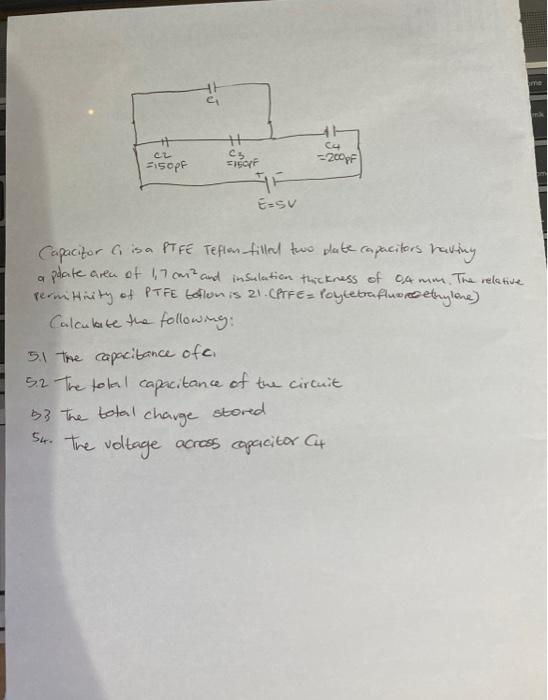 C1
C2
=150pF
C3
=150pF
C4
=200pF
+ -
E=5V
Capacitor C1 is a PTFE Teflon-filled two plate capacitors having
a plate area of 1,7 cm² and insulation thickness of 0,4 mm. The relative
permittivity of PTFE teflon is 21. (PTFE = Polytetrafluoroethylene)
Calculate the following:
5.1 The capacitance of C1
5.2 The total capacitance of the circuit
5.3 The total charge stored
5.4. The voltage across capacitor C4